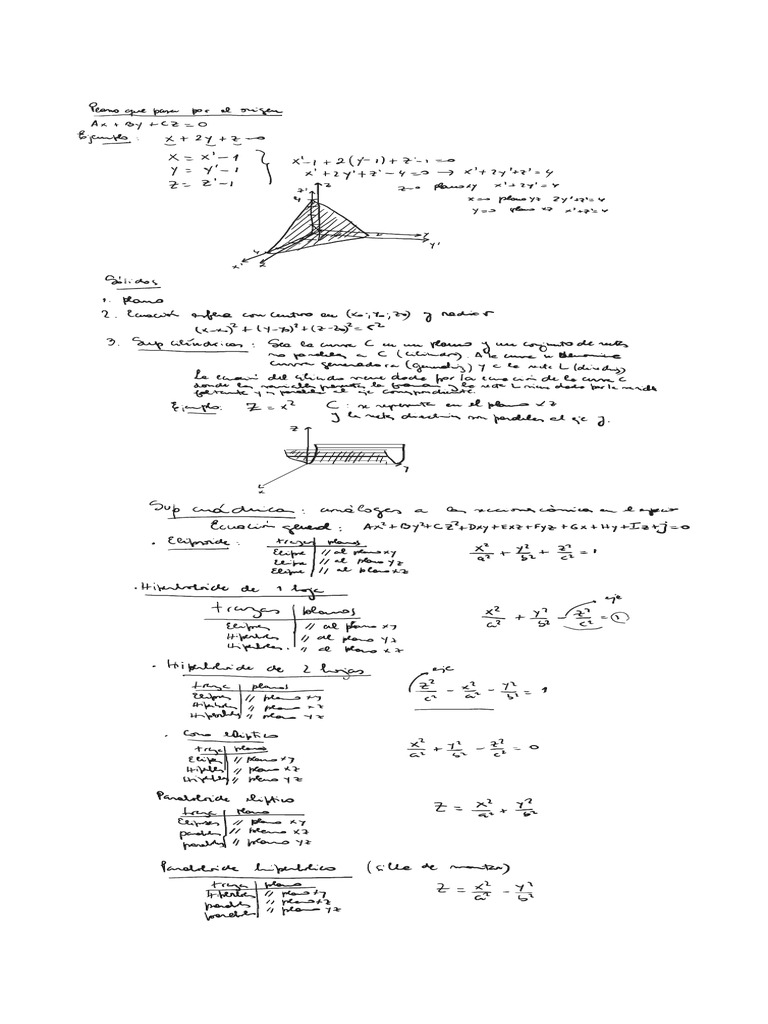 Plano que pasa por el origen
Ax + By + Cz = 0
Ejemplo: x + 2y + z = 0
x = x' - 1
y = y' - 1
z = z' - 1
x' - 1 + 2(y - 1) + z' - 1 = 0
x' + 2y' + z' - 4 = 0 → x' + 2y' + z' = 4
z = 0 plano xy x' + 2y' = 4
x = 0 plano yz 2y' + z' = 4
y = 0 plano xz x' + z' = 4
z' z
4
y
y'
4
x' x
Sólidos
1. Plano
2. Ecuación esfera con centro en (x₀; y₀; z₀) y radio r
(x-x₀)² + (y-y₀)² + (z-z₀)² = r²
3. Sup cilíndricas: Sea la curva C en un plano y un conjunto de rectas
no paralelas a C (cilindro). A la curva se denomina
curva generadora y a la recta L
La ecuación del cilindro viene dado por la ecuación de la curva C
donde las variables la forman y la recta L viene dado por la variable
faltante y es paralela al eje correspondiente.
Ejemplo: z = x² C: se representa en el plano xz
y la recta son paralelas al eje y.
z
y
x
Sup cuádricas: análogas a las secciones cónicas en el espacio
Ecuación general: Ax² + By² + Cz² + Dxy + Exz + Fyz + Gx + Hy + Iz + j = 0
. Elipsoide: trazas planos
Elipse // al plano xy
Elipse // al plano yz
Elipse // al plano xz
x²/a² + y²/b² + z²/c² = 1
. Hiperboloide de 1 hoja
trazas planos
Elipses // al plano xy
Hiperbolas // al plano yz
Hiperbolas // al plano xz
eje
x²/a² + y²/b² - z²/c² = 1
. Hiperboloide de 2 hojas
traza planos
Elipses // plano xy
Hiperbolas // plano xz
Hiperbolas // plano yz
eje
z²/c² - x²/a² - y²/b² = 1
. Cono elíptico
traza planos
Elipses // plano xy
Hiperbolas // plano xz
Hiperbolas // plano yz
x²/a² + y²/b² - z²/c² = 0
Paraboloide elíptico
traza plano
Elipses // plano xy
parabolas // plano xz
parabolas // plano yz
z = x²/a² + y²/b²
Paraboloide hiperbólico (silla de montar)
traza plano
Hiperbolas // plano xy
parabolas // plano xz
parabolas // plano yz
z = x²/a² - y²/b²